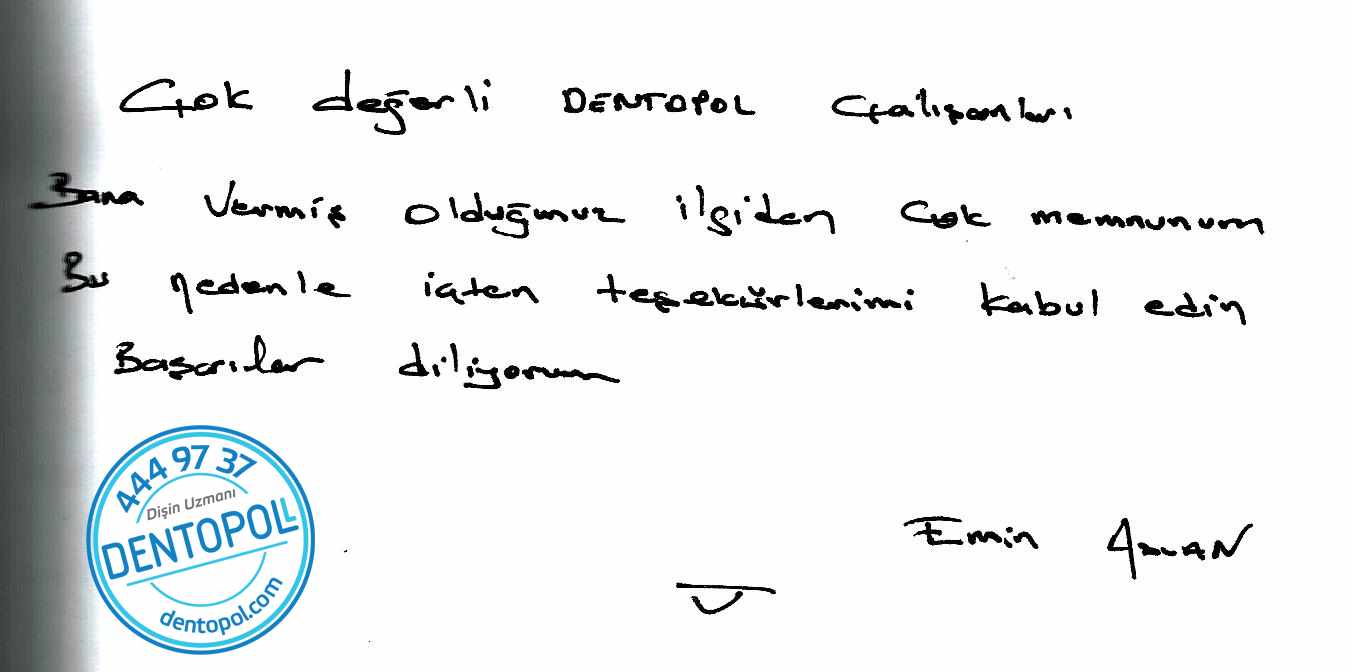 Çok değerli DENTOPOL Çalışanları
Bana Vermiş olduğunuz ilgiden Çok memnunum
Bu nedenle içten teşekürlerimi kabul edin
Başarılar diliyorum
444 97 37
Dişin Uzmanı
DENTOPOL
dentopol.com
Emin